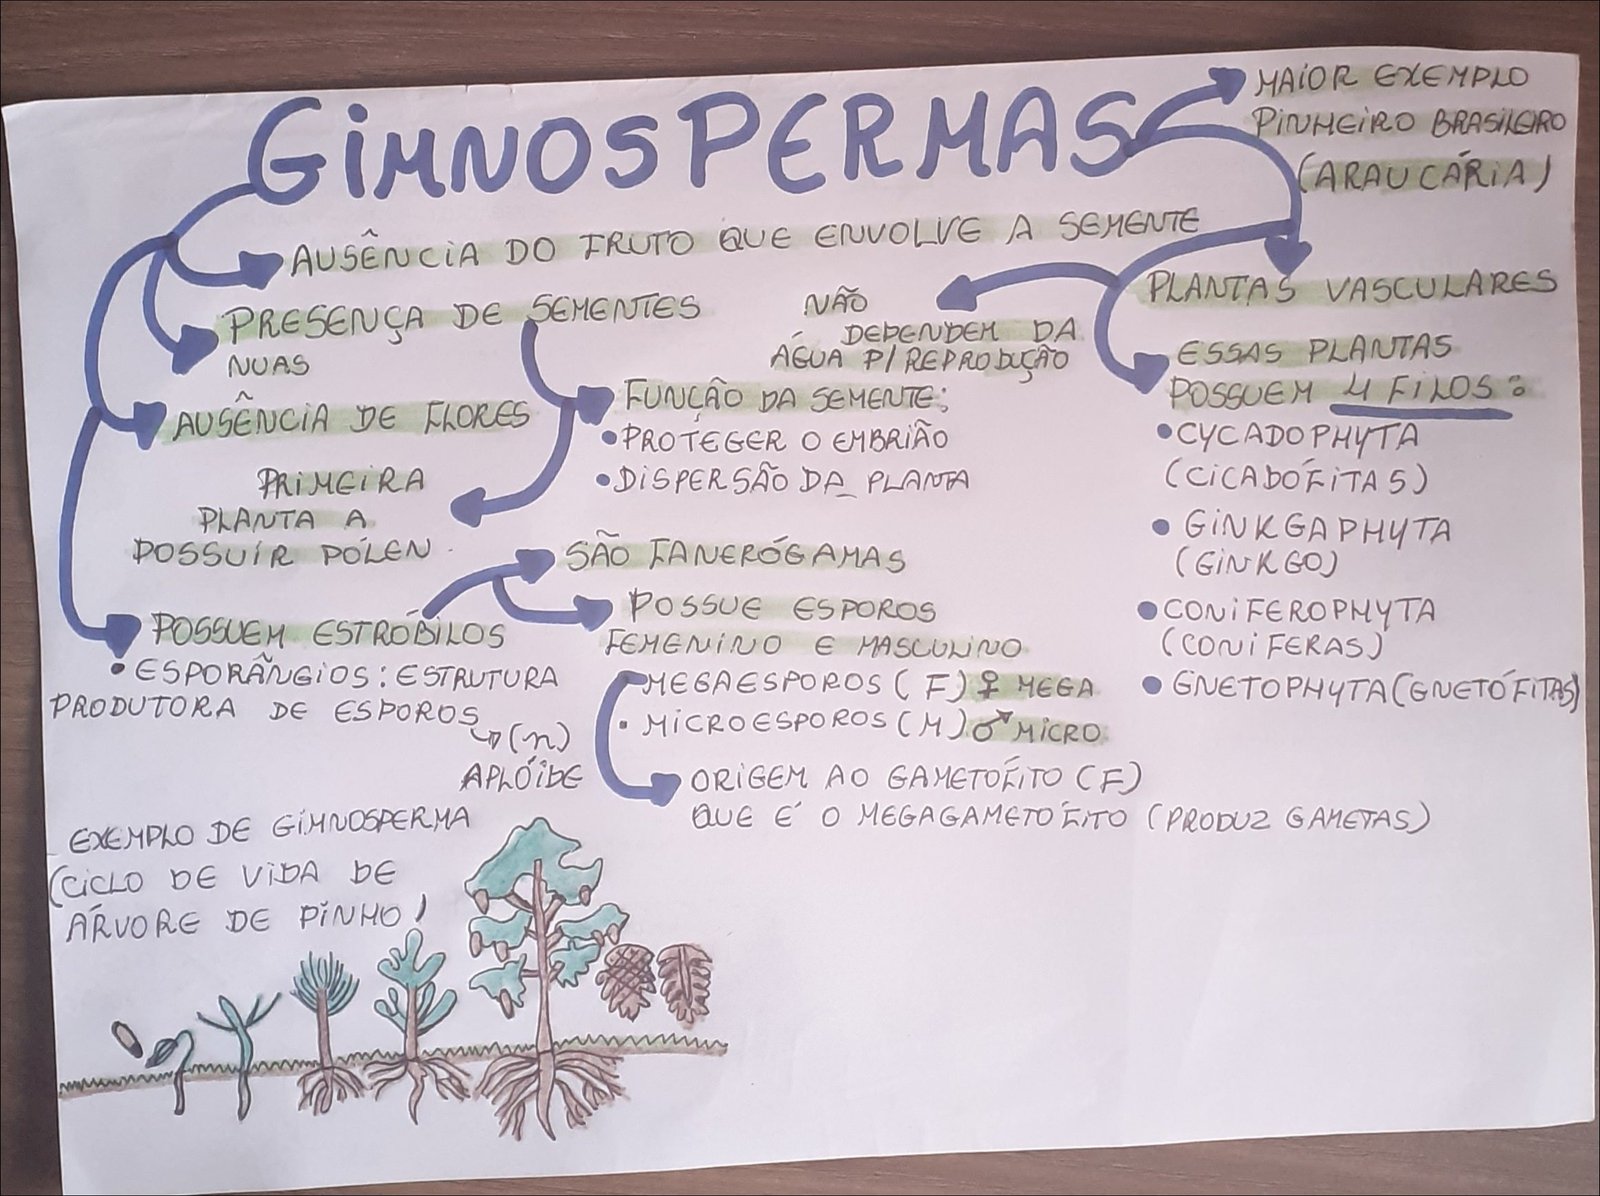 GIMNOSPERMAS
MAIOR EXEMPLO
PINHEIRO BRASILEIRO
(ARAUCÁRIA)
AUSÊNCIA DO FRUTO QUE ENVOLVE A SEMENTE
PRESENÇA DE SEMENTES
NUAS
AUSÊNCIA DE FLORES
PRIMEIRA
PLANTA A
POSSUIR PÓLEN
FUNÇÃO DA SEMENTE:
• PROTEGER O EMBRIÃO
• DISPERSÃO DA PLANTA
NÃO
DEPENDEM DA
ÁGUA P/ REPRODUÇÃO
PLANTAS VASCULARES
ESSAS PLANTAS
POSSUEM 4 FILOS:
• CYCADOPHYTA
(CICADÓFITAS)
• GINKGAPHYTA
(GINKGO)
• CONIFEROPHYTA
(CONIFERAS)
• GNETOPHYTA (GNETÓFITAS)
POSSUEM ESTRÓBILOS
• ESPORÂNGIOS: ESTRUTURA
PRODUTORA DE ESPOROS
(n)
APLÓIDE
SÃO FANERÓGAMAS
POSSUE ESPOROS
FEMENINO E MASCULINO
MEGAESPOROS (F) ♀ MEGA
• MICROESPOROS (M) ♂ MICRO
ORIGEM AO GAMETÓFITO (F)
QUE É O MEGAGAMETÓFITO (PRODUZ GAMETAS)
EXEMPLO DE GIMNOSPERMA
(CICLO DE VIDA DE
ÁRVORE DE PINHO)